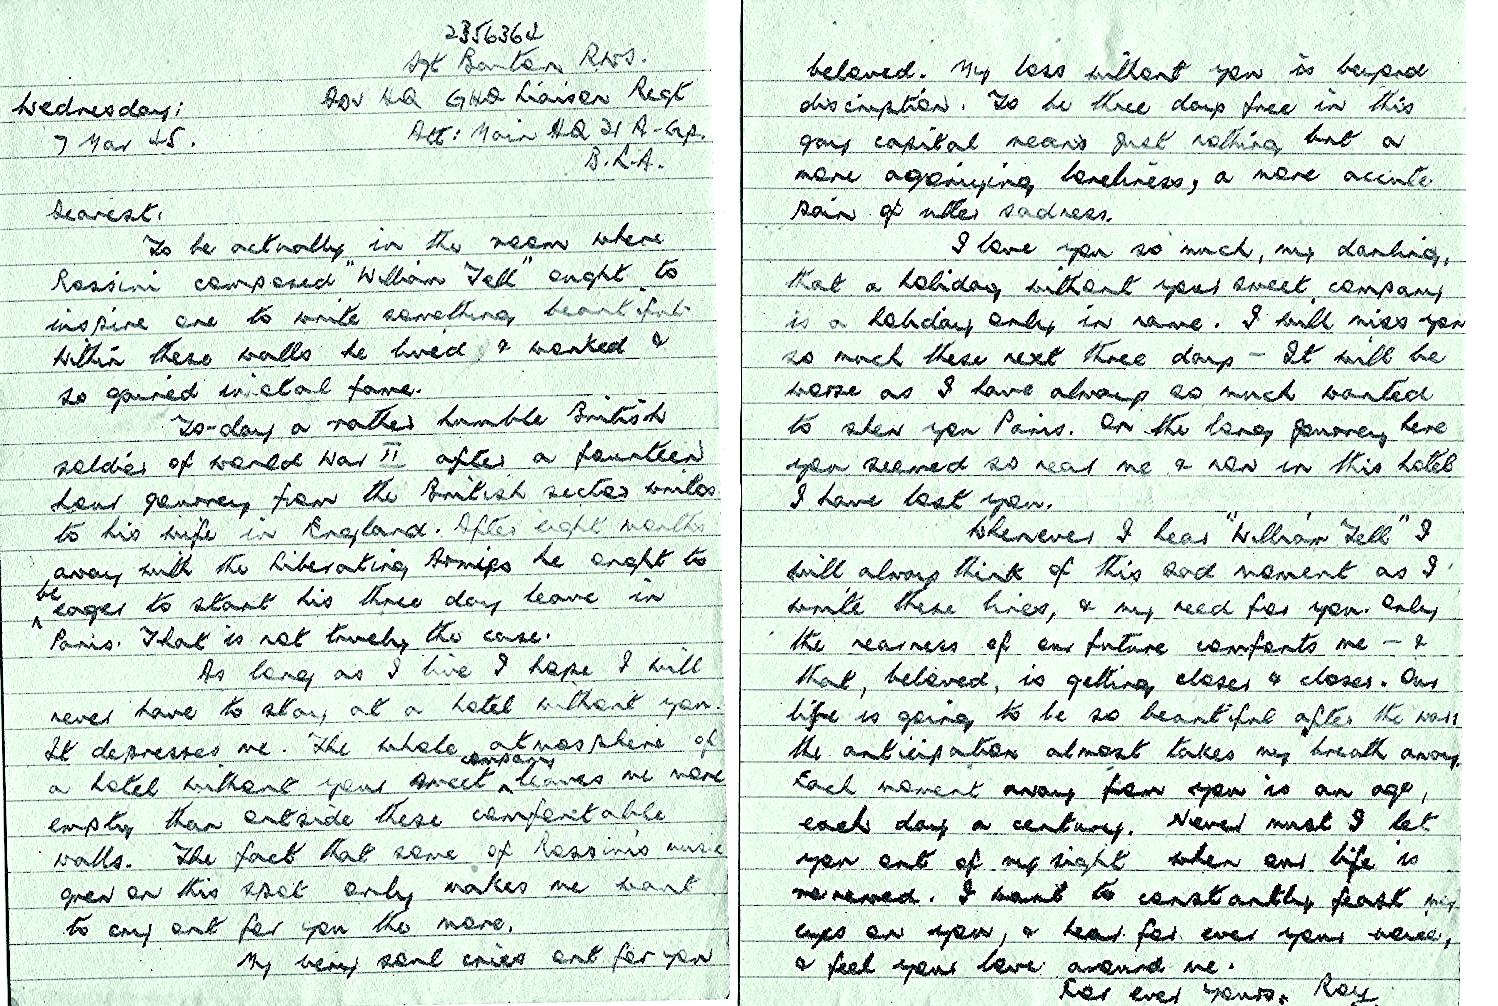 2356364
Sgt Bentar RWS.
Adv HQ GHQ Liaison Regt
Wednesday:
7 Mar 45.
Att: Main HQ 21 A-Gp.
B.L.A.
Dearest:
To be actually in the room where
Rossini composed "William Tell" ought to
inspire one to write something beautiful.
Within these walls he lived & worked &
so gained  fame.
To-day a rather humble British
soldier of world War II after a fourteen
hour journey from the British sector writes
to his wife in England. After eight months
away with the Liberating Armies he ought to
be
eager to start his three day leave in
Paris. That is not truely the case.
As long as I live I hope I will
never have to stay at a hotel without you.
It depresses me. The whole atmosphere of
company
a hotel without your sweet leaves me more
empty than outside these comfortable
walls. The fact that some of Rossini's music
grew on this spot only makes me want
to cry out for you the more.
My very soul cries out for you
beloved. My loss without you is beyond
discription. To be three days free in this
gay capital means just nothing but a
more agonizing loneliness, a more accute
pain of utter sadness.
I love you so much, my darling,
that a holiday without your sweet company
is a holiday only in name. I will miss you
so much these next three days - It will be
worse as I have always so much wanted
to shew you Paris. On the long journey here
you seemed so near me & now in this hotel
I have lost you.
Whenever I hear "William Tell" I
will always think of this sad moment as I
write these lines, & my need for you. Only
the nearness of our future comforts me - &
that, beloved, is getting closer & closer. Our
life is going to be so beautiful after the war
the anticipation almost takes my breath away.
Each moment away from you is an age,
each day a century. Never must I let
you out of my sight when our life is
renewed. I want to constantly feast my
eyes on you, & hear for ever your voice,
& feel your love around me.
For ever yours. Roy